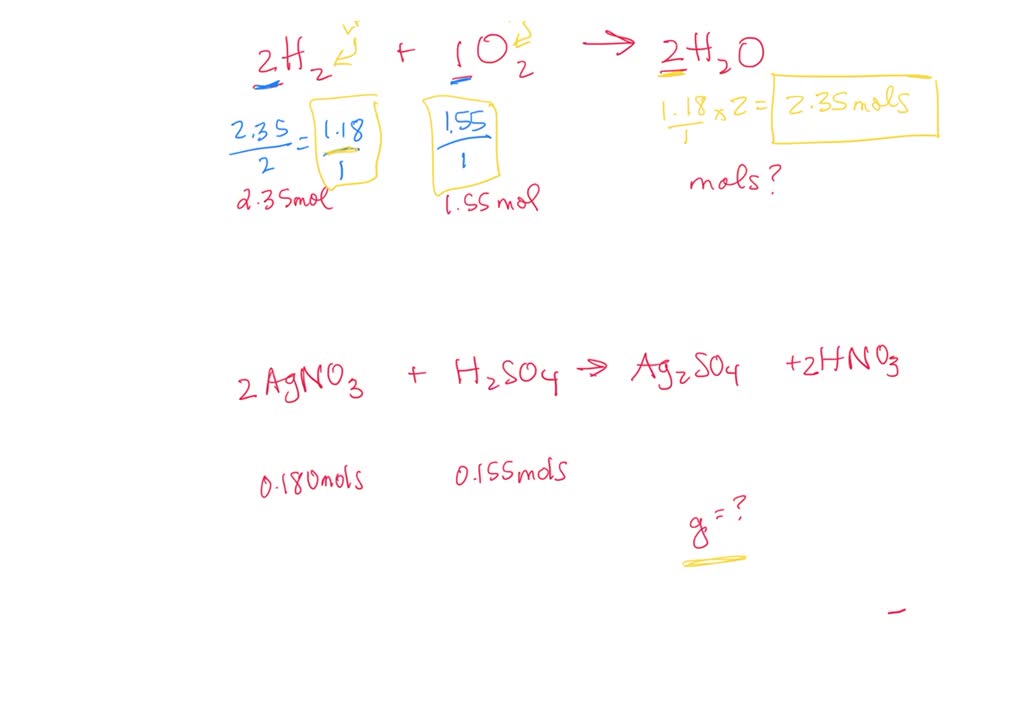 2H₂ + 1O₂ → 2H₂O
2.35/2 = 1.18/1 1.55/1 1.18/1 × 2 = 2.35mols
2.35mol 1.55mol mols?
2AgNO₃ + H₂SO₄ → Ag₂SO₄ + 2HNO₃
0.180mols 0.155mols
g = ?